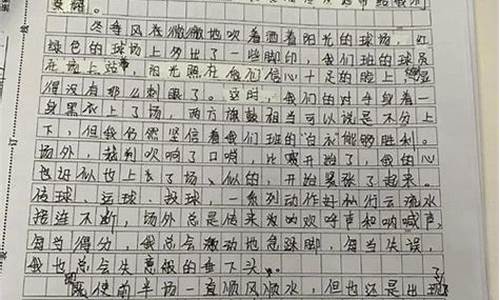 冬季风在微微地吹着洒着阳光的球场，红
绿色的球场上多出了一些脚印，我们班的球员
在场上站，阳光照在他们信心十足的脸上
得没有那么刺眼了。这时，我们的对手身着一
身黑衣上了场，两方旗鼓相当可以说是不分上
下，但我仍然坚信着我们班的"白衣能够胜利。
场外，裁判吹响了口哨，比赛开始了，我的心
也近似也上了场、似的，开始紧张了起来。
传球、运球、投球，一系列动作好似行云流水
接连不断，场外总是传来为的欢呼声和呐喊声，
每当得分，我总会激动地急跺脚，每当失误，
我也总会失意般的垂下头。
既使前半场一直顺风顺水，但也还是出现